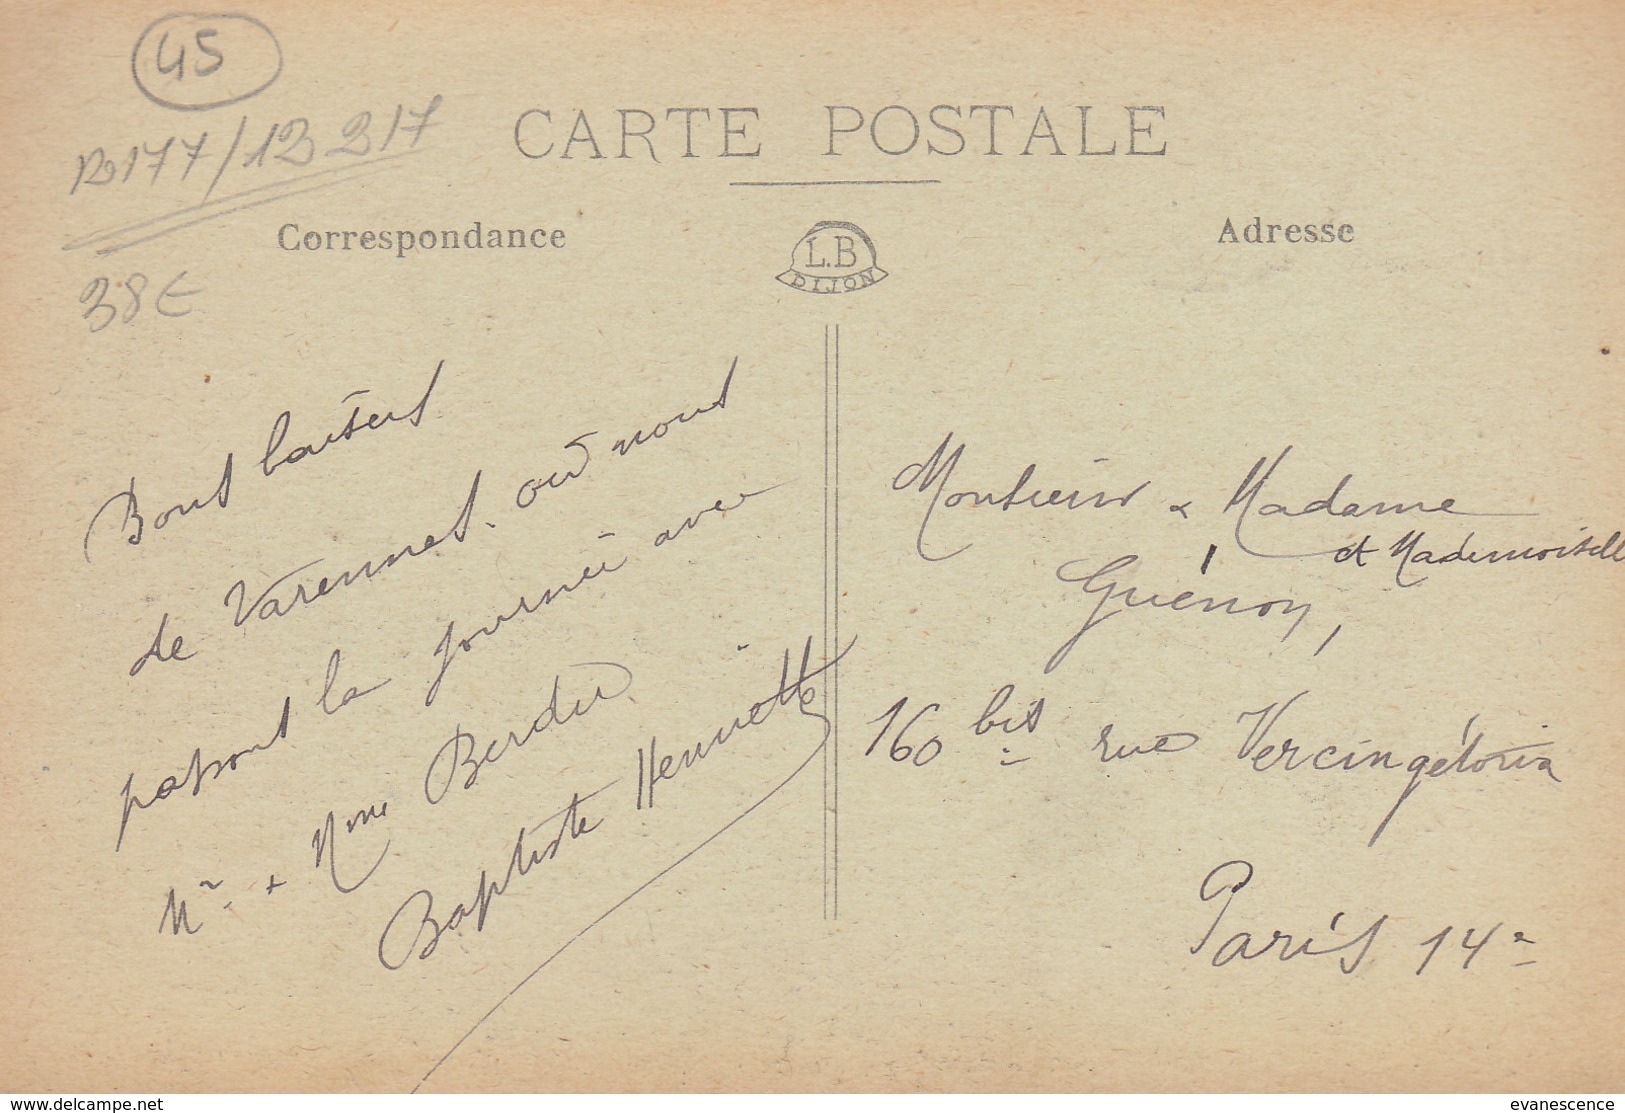 45
R177/12 217
38€
CARTE POSTALE
Correspondance
Adresse
L.B
DIJON
Bons baisers
de Varennes. où nous
passons la journée avec
Mr & Mme Berdu
Baptiste Henriette
Monsieur & Madame
et Mademoiselle
Guénon,
160 bis rue Vercingétorix
Paris 14e
www.delcampe.net
evanescence